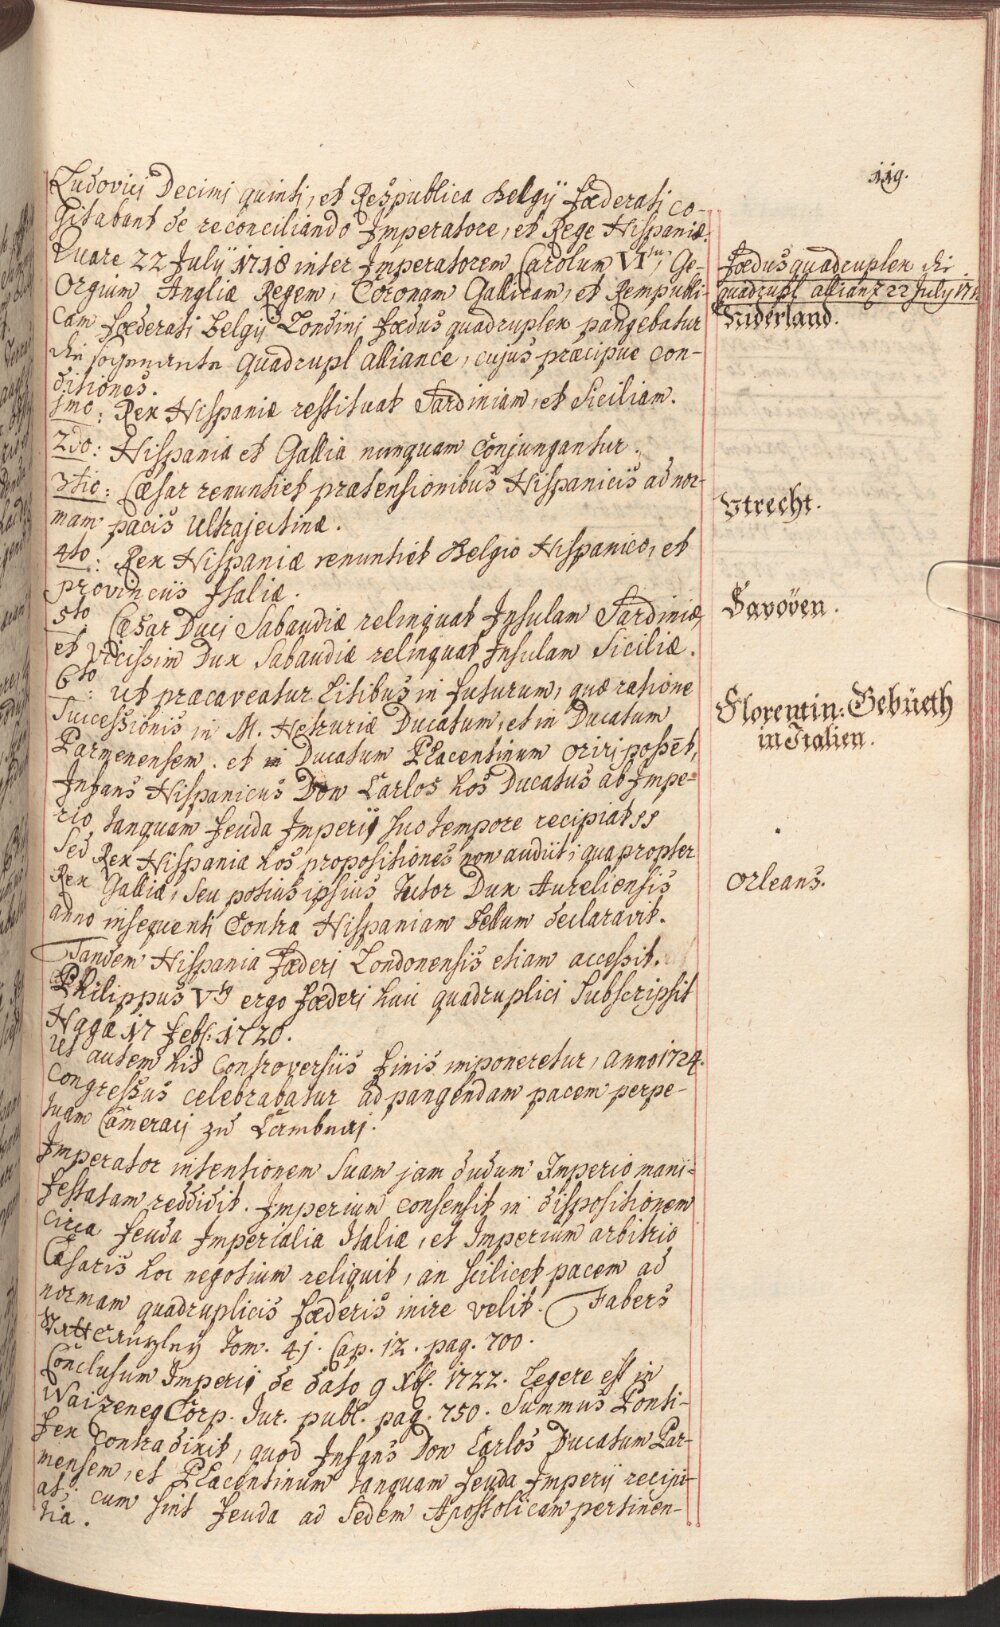 119.
Ludovici Decimi quinti, et Respublica Belgij foederati co-
gitabant de reconciliando Imperatore, et Rege Hispaniæ.
Quare 22 Julÿ 1718 inter Imperatorem Carolum VItum, Ge-
orgium Angliæ Regem, Coronam Gallicam, et Rempubli-
cam foederati Belgij Londini foedus quadruplex pangebatur
die sogenante quadrupl alliance, cujus præcipue con-
ditiones.
1mo: Rex Hispaniæ restituat Sardiniam, et Siciliam.
2do: Hispania et Gallia nunquam conjungantur.
3tio: Cæsar renuntiet prætensionibus Hispanicis ad nor-
mam pacis Ultrajectinæ.
4to: Rex Hispaniæ renuntiet Belgio Hispanico, et
provinciis Italiæ.
5to Cæsar Duci Sabaudiæ relinquat Insulam Sardiniæ,
et vicissim Dux Sabaudiæ relinquat Insulam Siciliæ.
6to: ut præcaveatur litibus in futurum, quæ ratione
Successionis in M. Hetruriæ Ducatum, et in Ducatum
Parmenensem. et in Ducatum Placentinum oriri possēt,
Infans Hispanicus Don Carlos hos Ducatus ab Impe=
rio tanquam feuda Imperij suo tempore recipiat ss
Sed Rex Hispania hos propositiones non audiit; quapropter
Rex Galliæ, seu potius ipsius tutor Dux Aureliensis
anno insequenti contra Hispaniam bellum declaravit.
Tandem Hispania foederi Londonensis etiam accessit.
Philippus Vtus ergo foederi huic quadruplici subscripsit
Hagæ 17 feb: 1720.
Ut autem his Controversiis finis imponeretur, anno 1724.
congressus celebrabatur ad pangendam pacem perpe-
tuam Cameracij zu
Imperator intentionem suam jam dudum Imperio mani=
festatam reddidit. Imperium consensit in dispositionem
circa feuda Imperialia Italiæ, et Imperium arbitrio
Cæsaris hoc negotium reliquit, an scilicet pacem ad
normam quadruplicis foederis inire velit. Fabers
Tom. 41. Cap. 12. pag. 700.
Conclusum Imperij de dato 9 Xbr. 1722. Legere est in
Waizeneg Corp. Jur. publ. pag. 750. Summus Ponti-
fex contradixit, quod Infans Don Carlos Ducatum Par-
mensem, et Placentinum tanquam feuda Imperij recipi-
at, cum sint feuda ad Sedem Apostolicam pertinen-
tia.
foedus quadruplex die
quadrupl allianz 22 July 171
Niderland.
Utrecht.
Savoÿen.
Florentin: Gebüeth
in Italien.
Orleans.